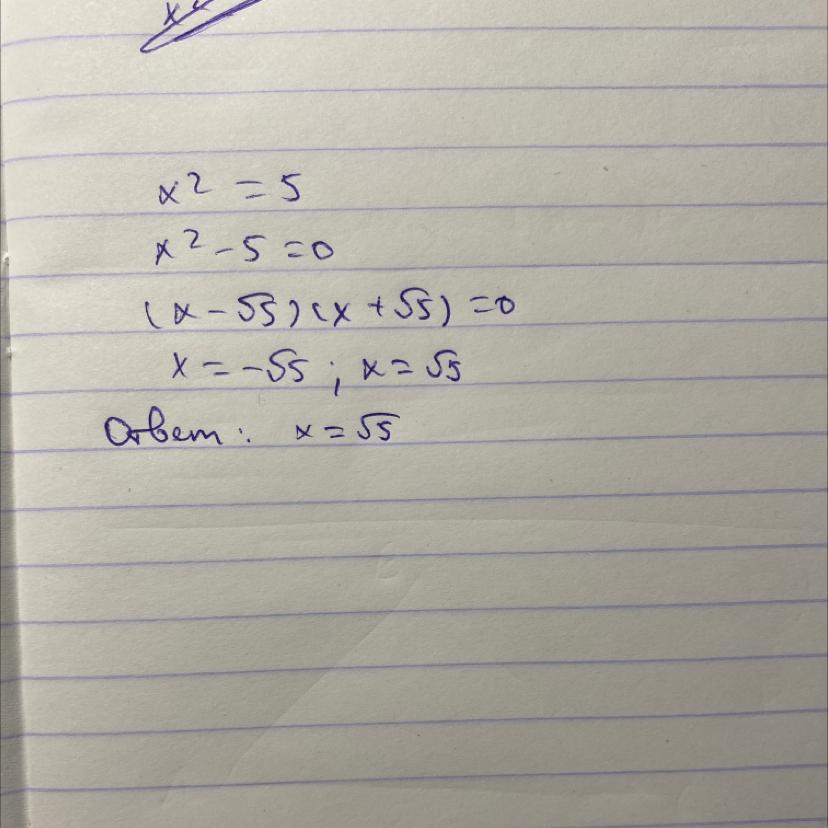 x² = 5
x² - 5 = 0
(x - √5)(x + √5) = 0
x = -√5 ; x = √5
Ответ: x = √5